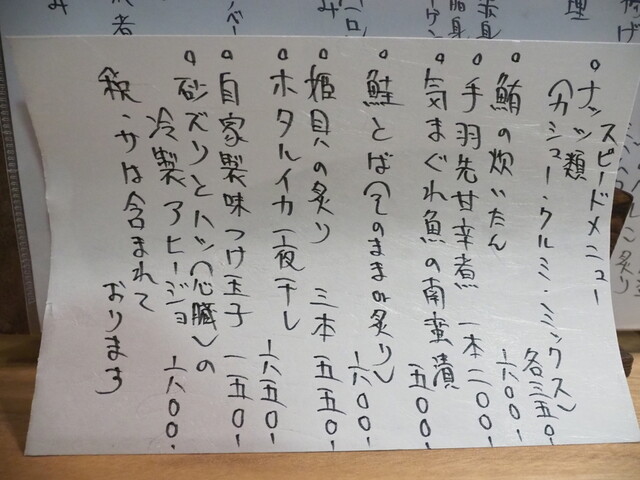 スピードメニュー
○ナッツ類
(カシュー・クルミ・ミックス) 各三五〇-
○鮪の炊いたん 六〇〇-
○手羽先甘辛煮 一本二〇〇-
○気まぐれ魚の南蛮漬 五〇〇-
○鮭とば(そのままor炙り) 六〇〇-
○姫貝の炙り 三本五五〇-
○ホタルイカ一夜干し 六五〇-
○自家製味つけ玉子 一五〇-
○砂ズリとハツ(心臓)の
冷製アヒージョ 六〇〇-
税・サは含まれて
おります